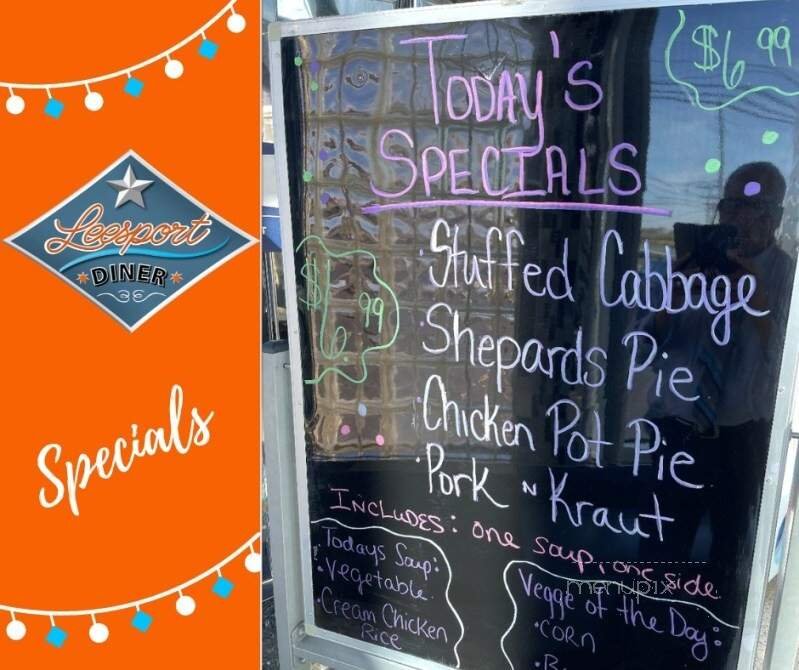 Leesport
DINER
Specials
TODAY'S
SPECIALS
$6 99
$6. 99
· Stuffed Cabbage
· Shepards Pie
· Chicken Pot Pie
· Pork n Kraut
INCLUDES: one soup, one side.
Todays Soup:
· Vegetable
· Cream Chicken
Rice
Vegge of the Day:
· CORN
menupix